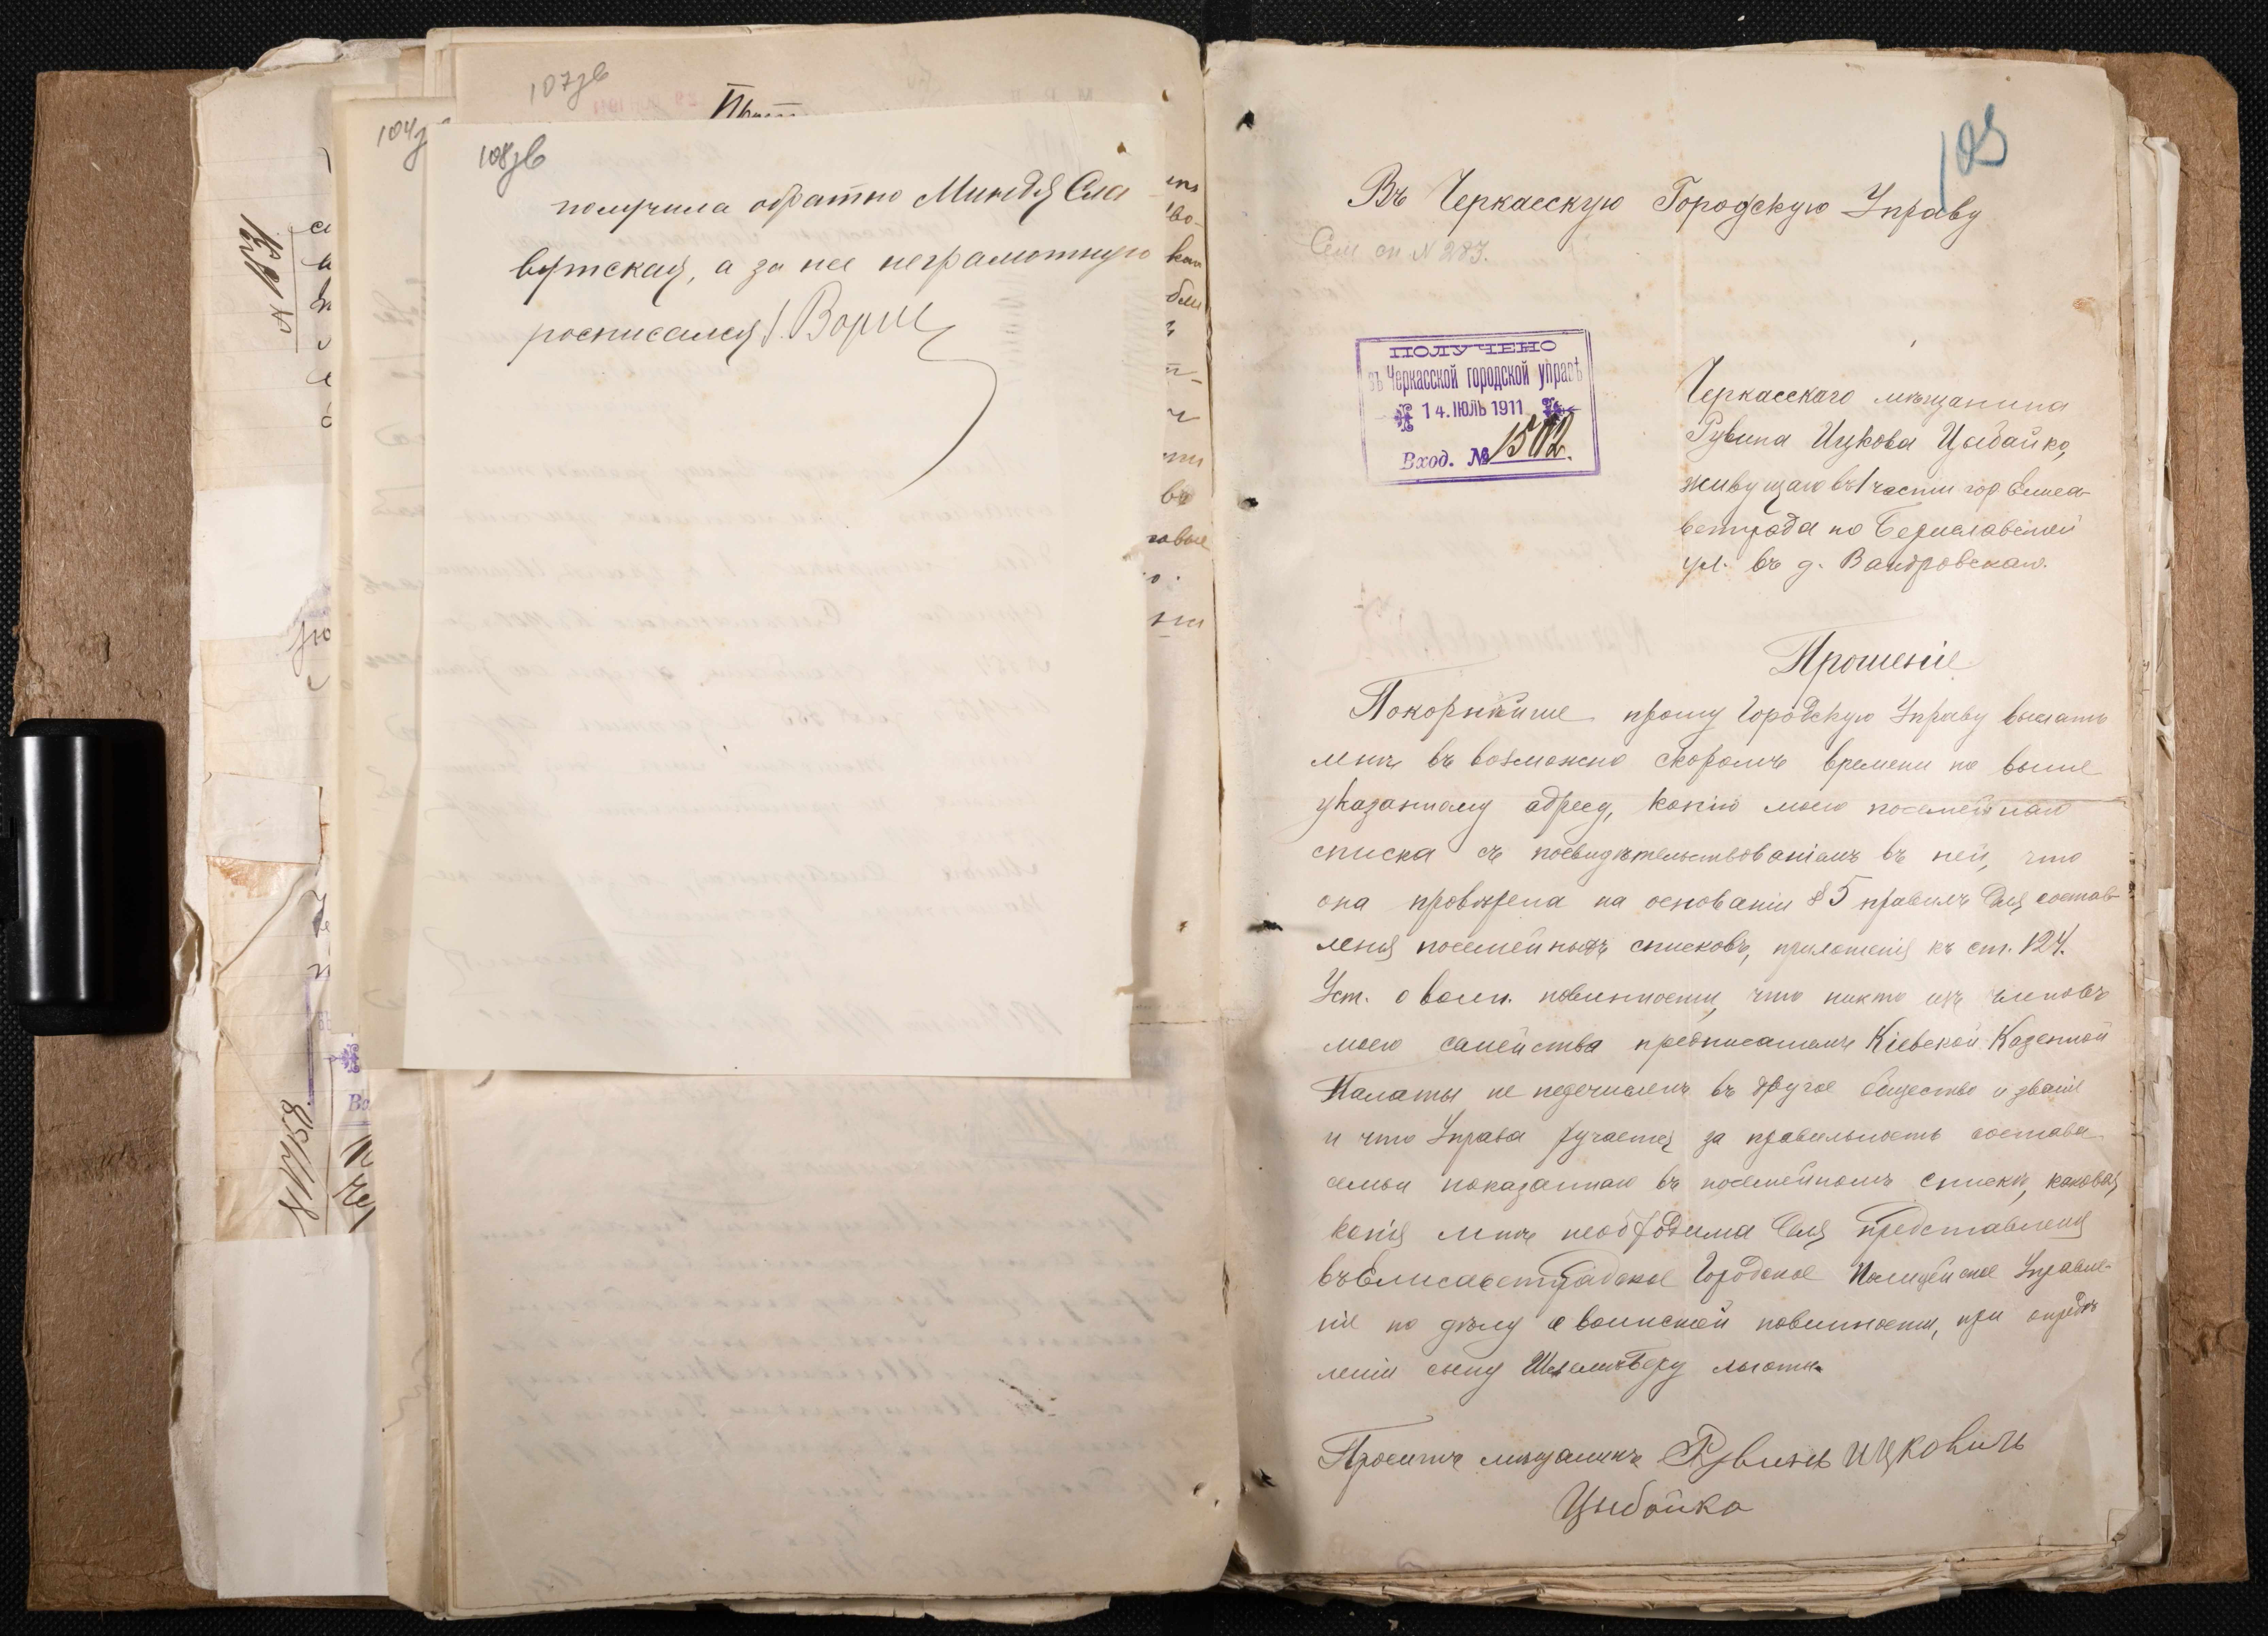 107зв
104
108зв
получила обратно Миндля Сла
вутская, а за нее неграмотную
росписался
N 1631
N 1758
109
Въ Черкасскую Городскую Управу
Сем сп N 283.
ПОЛУЧЕНО
въ Черкасской городской управѣ
14. ІЮЛЬ 1911
Вход. № 1502.
Черкасскаго мѣщанина
Рувина Ицкова Цыбайко,
живущаго въ 1 части гор Елиса-
ветграда по Бериславской
ул. въ д.
Прошеніе
Покорнѣйше прошу Городскую Управу выслать
мнѣ въ возможно скоромъ времени по выше
указанному адресу, копію моего посемейнаго
списка съ посвидѣтельствованіемъ въ ней, что
она провѣрена на основаніи § 5 правилъ для состав-
ленія посемейныхъ списковъ, приложенія къ ст. 124.
Уст. о воин. повинности, что никто изъ членовъ
моего семейства предписаніемъ Кіевской Казенной
Палаты не перечисленъ въ другое общество и званіе
и что Управа ручается за правильность состава
семьи показаннаго въ посемейномъ списки, каковая
копія мнѣ необходима для представленія
въ Елисаветградское Городское Полицейское Управле-
ніе по дѣлу о воинской повинности, при опредѣ
леніи сыну льготы.
Проситъ мѣщанинъ Рувинъ Ицковичъ
Цыбайко